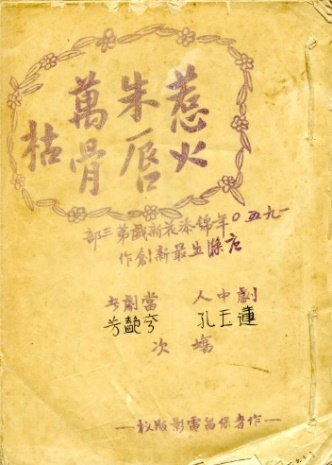 惹火
朱唇
萬骨
枯
一九五〇年錦添花新戲第三部
唐滌生最新創作
劇中人 當劇者
孔玉蓮 芳艷芬
場次
作者保留電影版權